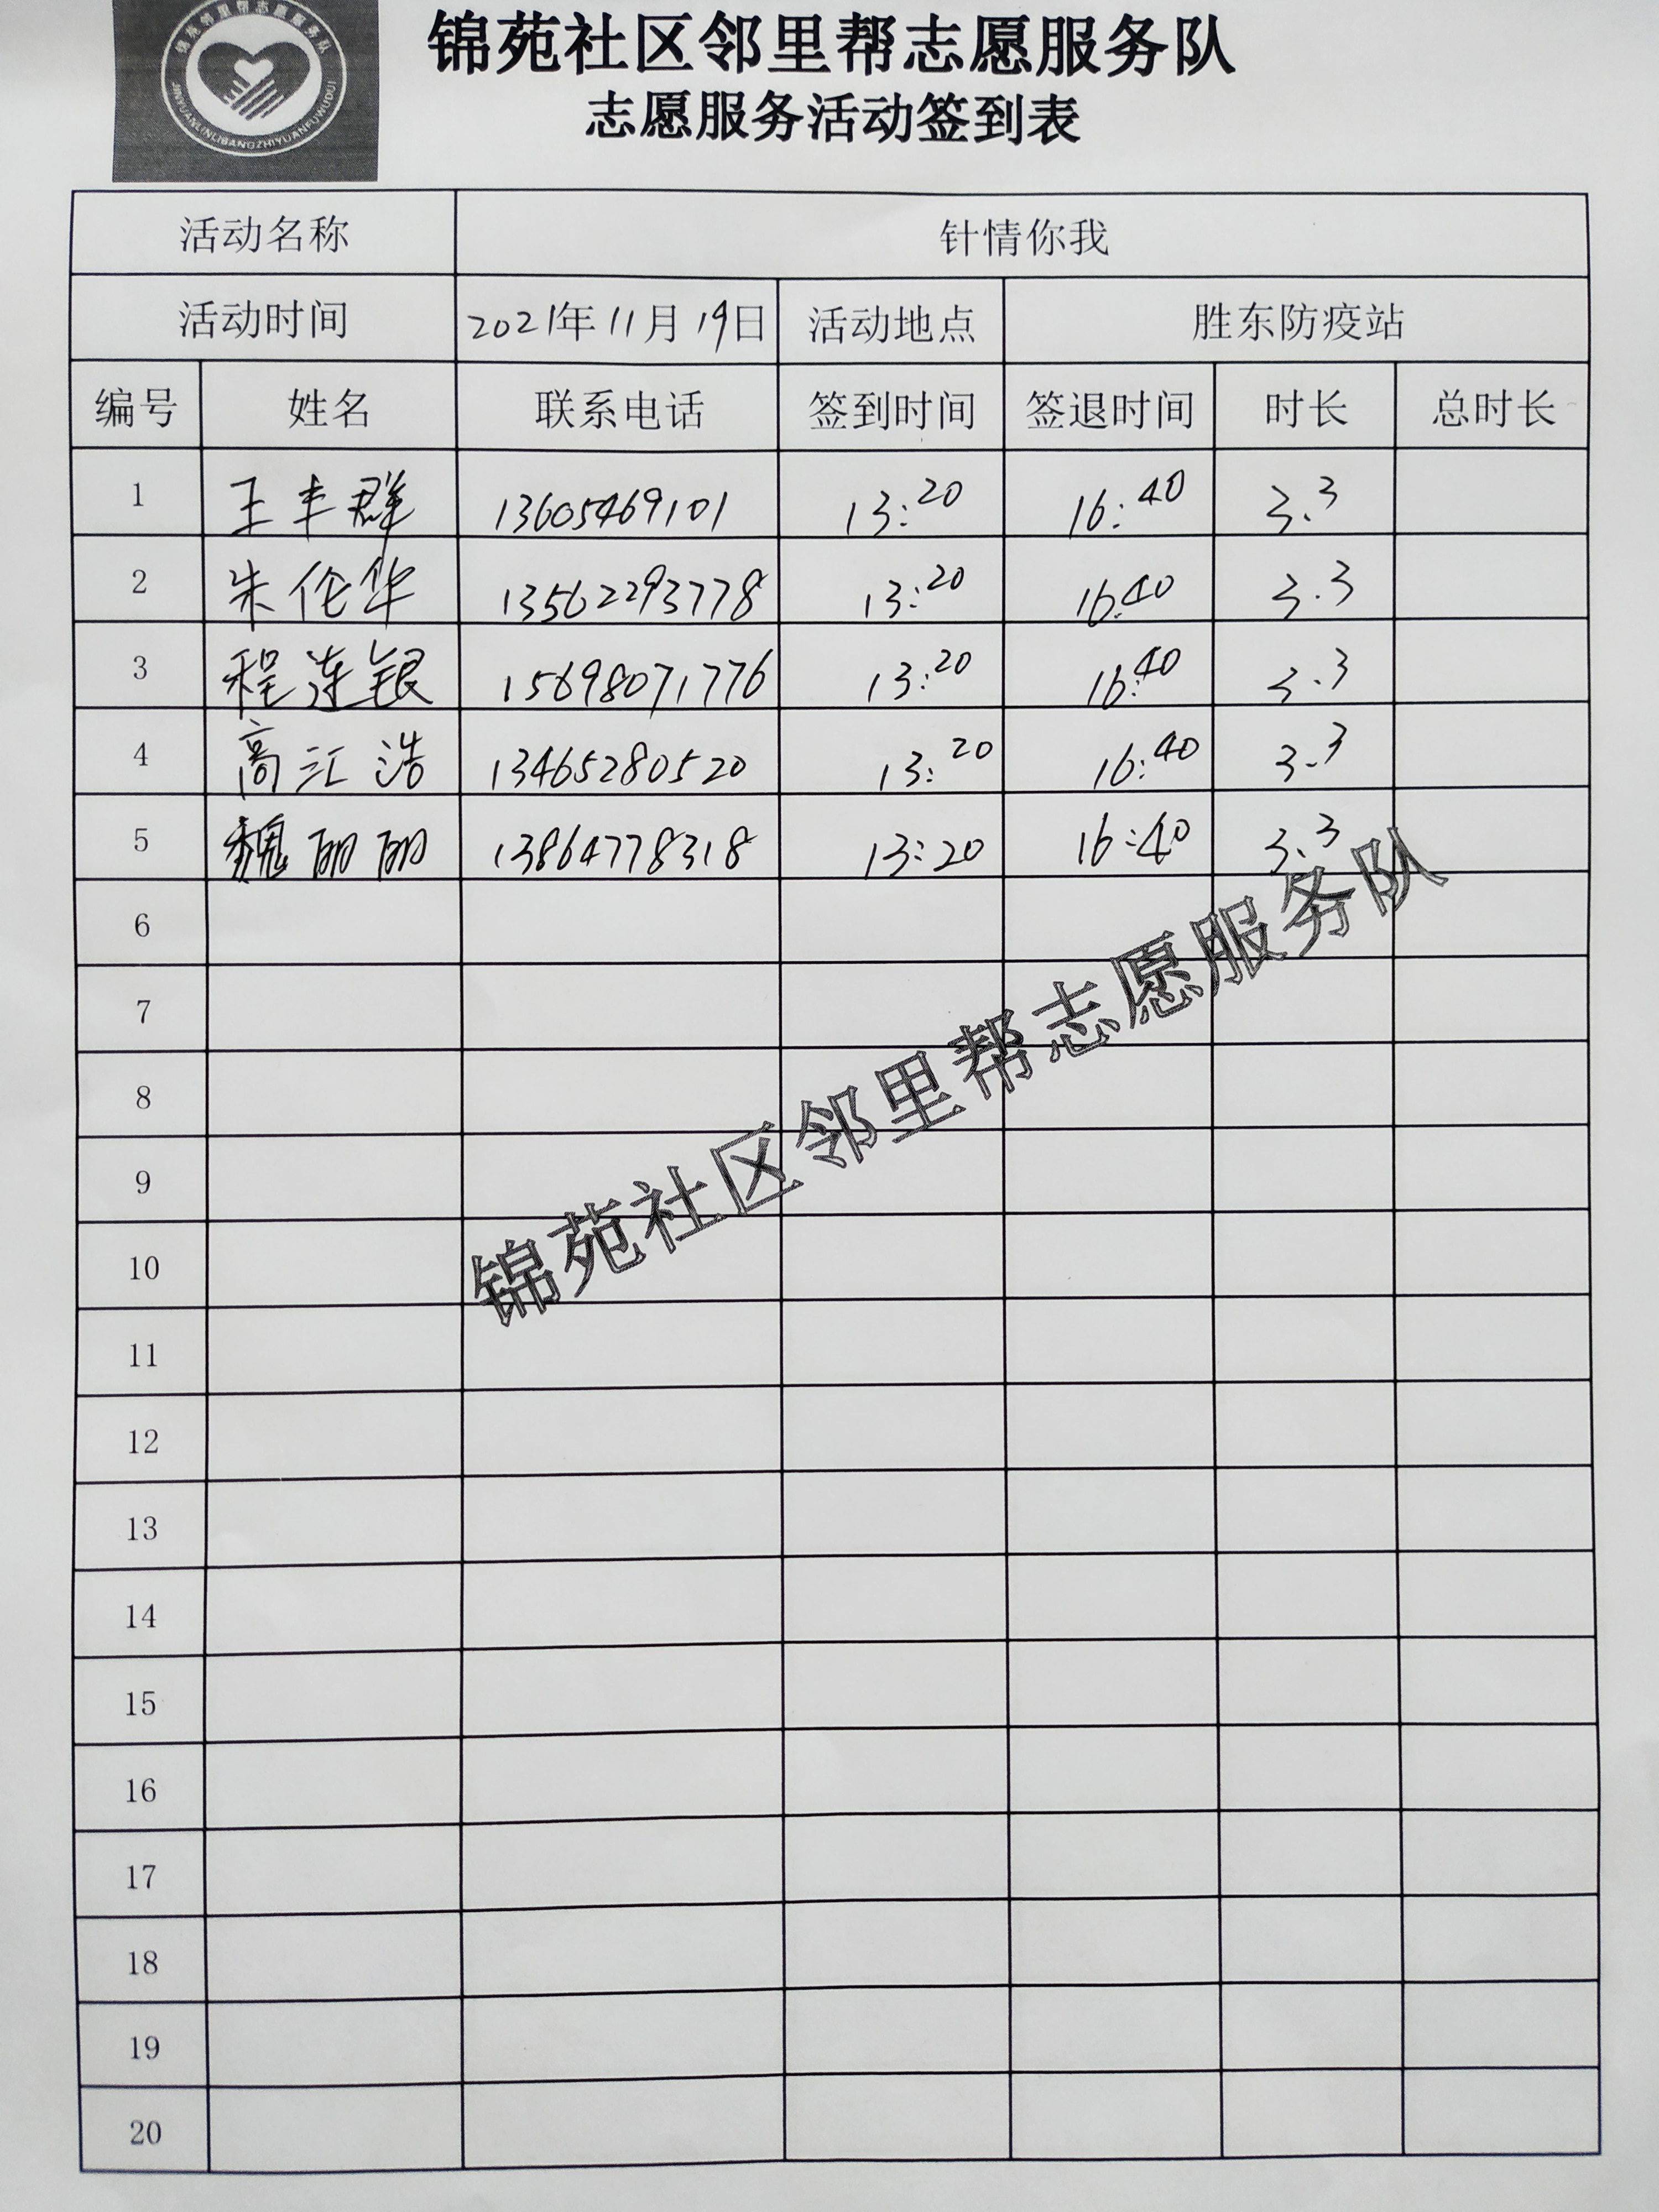 锦苑邻里帮志愿服务队
JINYUANLINLIBANGZHIYUANFUWUDUI
锦苑社区邻里帮志愿服务队
志愿服务活动签到表
活动名称 针情你我
活动时间 2021年11月19日 活动地点 胜东防疫站
编号 姓名 联系电话 签到时间 签退时间 时长 总时长
1 王丰群 13605469101 13:20 16:40 3.3
2 朱伦华 13562293778 13:20 16:40 3.3
3 程连银 15698071776 13:20 16:40 3.3
4 高江浩 13465280520 13:20 16:40 3.3
5 魏丽丽 13864778318 13:20 16:40 3.3
6
7
8
9
10
11
12
13
14
15
16
17
18
19
20
锦苑社区邻里帮志愿服务队